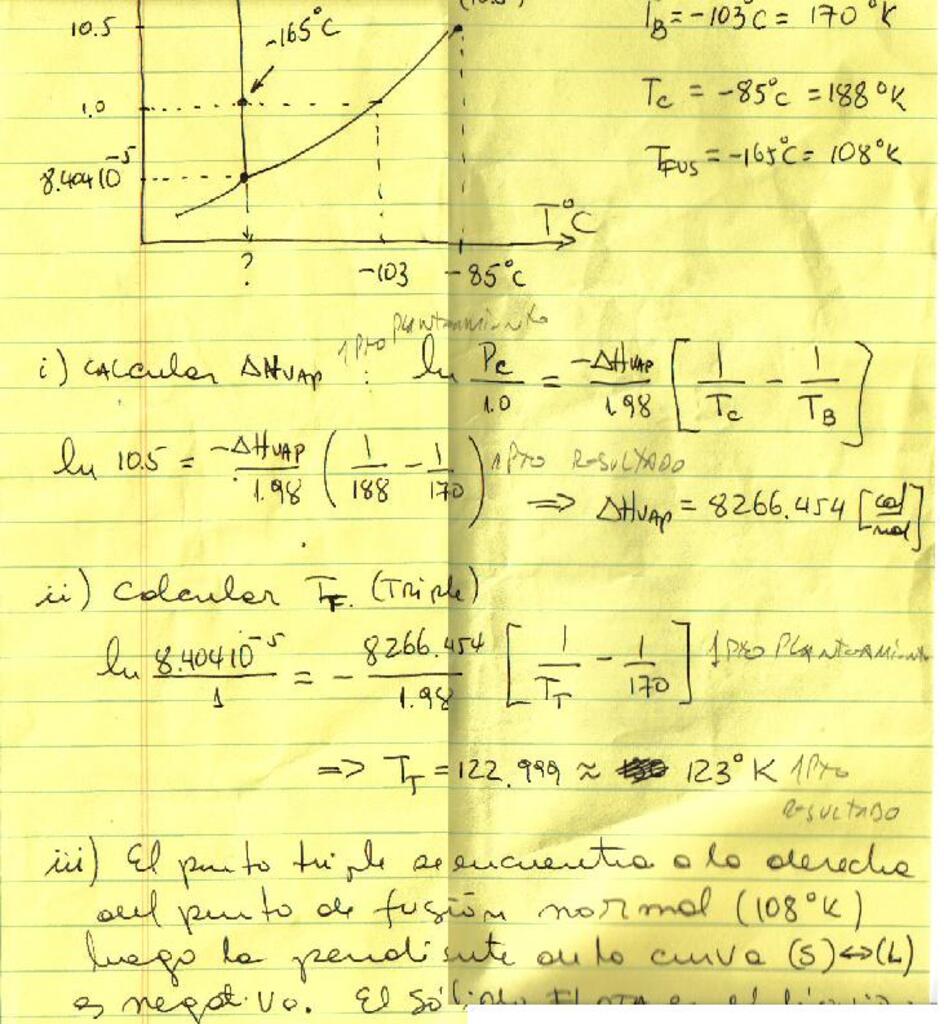 10.5
-165°C
T_B = -103°C = 170 °K
1.0
T_C = -85°C = 188°K
8.404 10^-5
T_FUS = -165°C = 108°K
T°C
? -103 -85°C
1 Pto Planteamiento
i) CALCULAR ΔH_VAP : ln P_C/1.0 = -ΔH_VAP/1.98 [1/T_C - 1/T_B]
ln 10.5 = -ΔH_VAP/1.98 (1/188 - 1/170) 1 PTO RESULTADO
=> ΔH_VAP = 8266.454 [cal/mol]
ii) Calcular T_F. (Triple)
ln 8.404 10^-5/1 = - 8266.454/1.98 [1/T_T - 1/170] 1 Pto Planteamiento
=> T_T = 122.999 ≈ 123°K 1 Pto
RESULTADO
iii) El punto triple se encuentra a la derecha
del punto de fusión normal (108°K)
luego la pendiente de la curva (S)↔(L)
es negativa. El Sólido FLOTA en el líquido